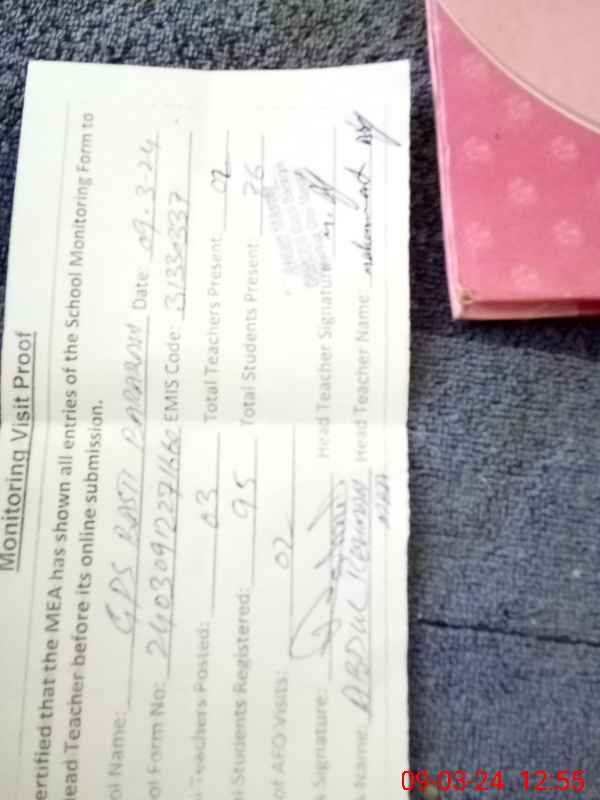 Monitoring Visit Proof
ertified that the MEA has shown all entries of the School Monitoring Form to
ead Teacher before its online submission.
ol Name: GPS BASTI Date: 09-3-24
ol Form No: EMIS Code: 31330337
Teachers Posted: 03 Total Teachers Present: 02
l Students Registered: 95 Total Students Present: 76
of AFO Visits: 02
Signature: Head Teacher Signature:
Name: ABDUL REHMAN Head Teacher Name: Mohammad
MEA
09-03-24 12:55